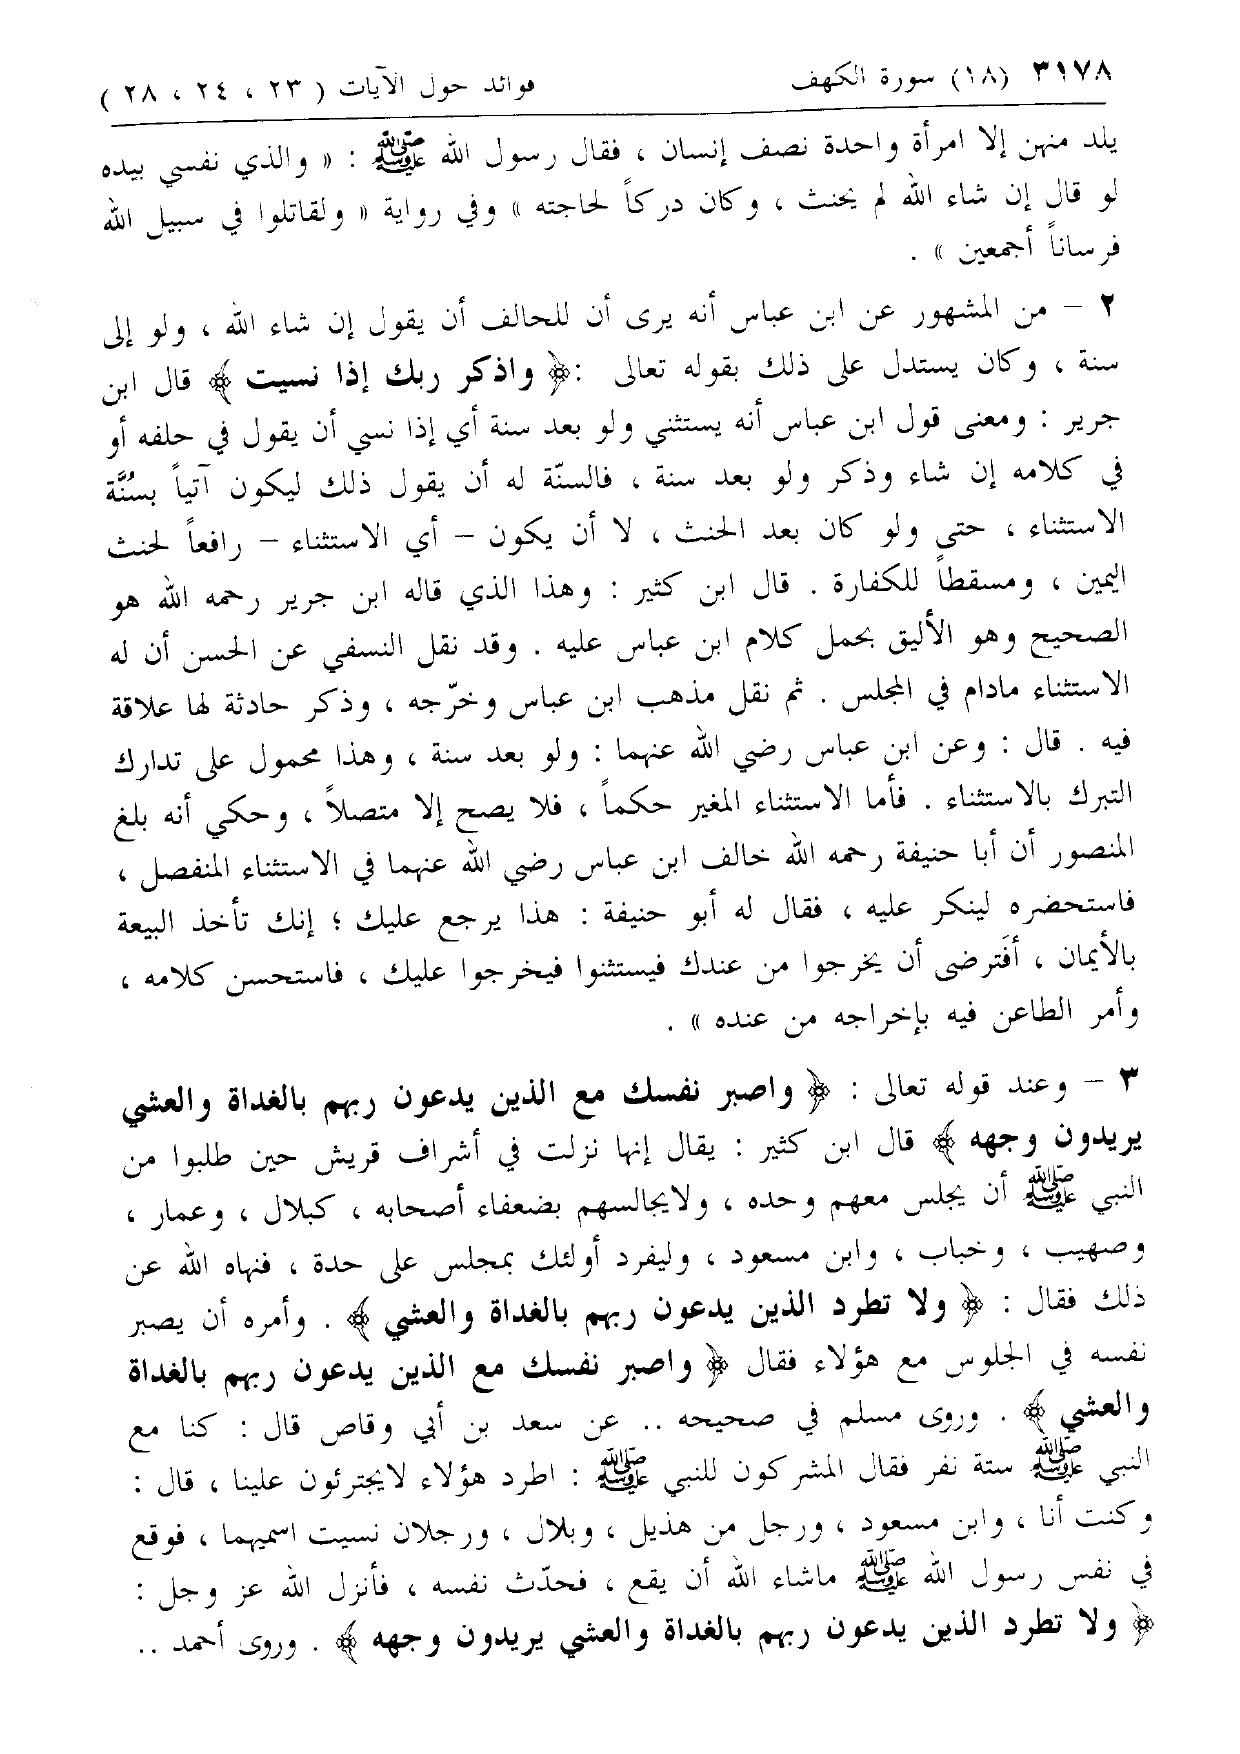 ٣١٧٨ (١٨) سورة الكهف فوائد حول الآيات ( ٢٣ ، ٢٤ ، ٢٨ )
يلد منهن إلا امرأة واحدة نصف إنسان ، فقال رسول الله ﷺ : « والذي نفسي بيده
لو قال إن شاء الله لم يحنث ، وكان دركاً لحاجته » وفي رواية « ولقاتلوا في سبيل الله
فرساناً أجمعين » .
٢ – من المشهور عن ابن عباس أنه يرى أن للحالف أن يقول إن شاء الله ، ولو إلى
سنة ، وكان يستدل على ذلك بقوله تعالى :﴿ واذكر ربك إذا نسيت ﴾ قال ابن
جرير : ومعنى قول ابن عباس أنه يستثني ولو بعد سنة أي إذا نسي أن يقول في حلفه أو
في كلامه إن شاء وذكر ولو بعد سنة ، فالسنّة له أن يقول ذلك ليكون آتياً بسُنَّة
الاستثناء ، حتى ولو كان بعد الحنث ، لا أن يكون – أي الاستثناء – رافعاً لحنث
اليمين ، ومسقطاً للكفارة . قال ابن كثير : وهذا الذي قاله ابن جرير رحمه الله هو
الصحيح وهو الأليق بحمل كلام ابن عباس عليه . وقد نقل النسفي عن الحسن أن له
الاستثناء مادام في المجلس . ثم نقل مذهب ابن عباس وخرّجه ، وذكر حادثة لها علاقة
فيه . قال : وعن ابن عباس رضي الله عنهما : ولو بعد سنة ، وهذا محمول على تدارك
التبرك بالاستثناء . فأما الاستثناء المغير حكماً ، فلا يصح إلا متصلاً ، وحكي أنه بلغ
المنصور أن أبا حنيفة رحمه الله خالف ابن عباس رضي الله عنهما في الاستثناء المنفصل ،
فاستحضره لينكر عليه ، فقال له أبو حنيفة : هذا يرجع عليك ؛ إنك تأخذ البيعة
بالأيمان ، أفَترضى أن يخرجوا من عندك فيستثنوا فيخرجوا عليك ، فاستحسن كلامه ،
وأمر الطاعن فيه بإخراجه من عنده » .
٣ – وعند قوله تعالى : ﴿ واصبر نفسك مع الذين يدعون ربهم بالغداة والعشي
يريدون وجهه ﴾ قال ابن كثير : يقال إنها نزلت في أشراف قريش حين طلبوا من
النبي ﷺ أن يجلس معهم وحده ، ولايجالسهم بضعفاء أصحابه ، كبلال ، وعمار ،
وصهيب ، وخباب ، وابن مسعود ، وليفرد أولئك بمجلس على حدة ، فنهاه الله عن
ذلك فقال : ﴿ ولا تطرد الذين يدعون ربهم بالغداة والعشي ﴾ . وأمره أن يصبر
نفسه في الجلوس مع هؤلاء فقال ﴿ واصبر نفسك مع الذين يدعون ربهم بالغداة
والعشي ﴾ . وروى مسلم في صحيحه .. عن سعد بن أبي وقاص قال : كنا مع
النبي ﷺ ستة نفر فقال المشركون للنبي ﷺ : اطرد هؤلاء لايجترئون علينا ، قال :
وكنت أنا ، وابن مسعود ، ورجل من هذيل ، وبلال ، ورجلان نسيت اسميهما ، فوقع
في نفس رسول الله ﷺ ماشاء الله أن يقع ، فحدّث نفسه ، فأنزل الله عز وجل :
﴿ ولا تطرد الذين يدعون ربهم بالغداة والعشي يريدون وجهه ﴾ . وروى أحمد ..